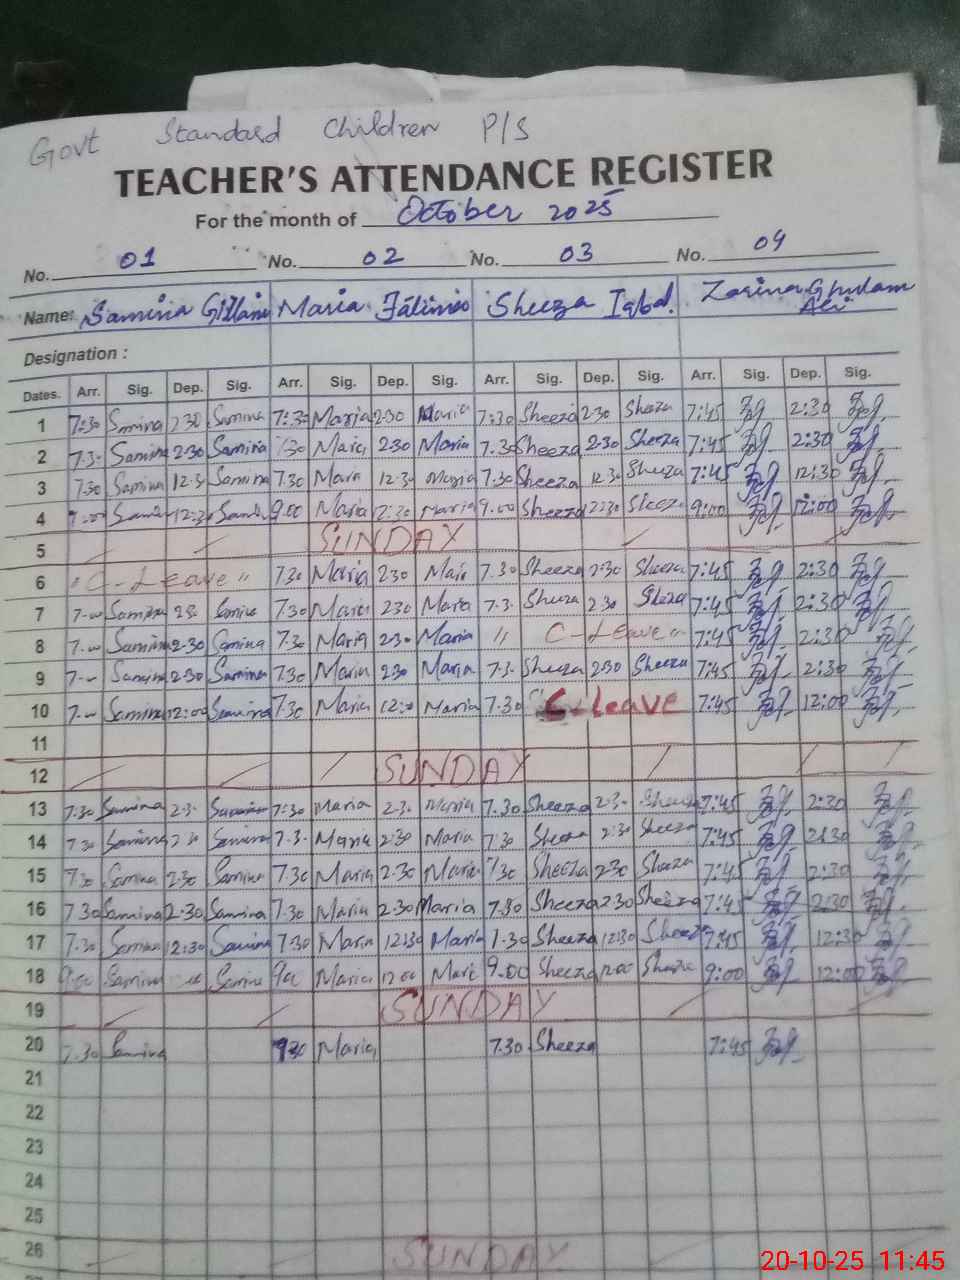 Govt Standard Children P/S
TEACHER'S ATTENDANCE REGISTER
For the month of October 2025
No. 01 No. 02 No. 03 No. 04
Name: Samina Gillani Maria Fatima Sheeza Iqbal. Zarina Ghulam Ali
Designation :
Dates. Arr. Sig. Dep. Sig. Arr. Sig. Dep. Sig. Arr. Sig. Dep. Sig. Arr. Sig. Dep. Sig.
1 7:30 Samina 2 30 Samina 7:30 Maria 2:30 Maria 7:30 Sheeza 2:30 Sheeza 7:45 2:30
2 7.3- Samina 2:30 Samina 7:30 Maria 2:30 Maria 7.30 Sheeza 2:30 Sheeza 7:45 2:30
3 7:30 Samina 12:3- Samina 7.30 Maria 12:3- Maria 7.30 Sheeza 12:30 Sheeza 7:45 12:30
4 9.00 Maria Maria 9.00 Sheeza Sheeza 9:00 12:00
5 SUNDAY
6 " C-Leave " 7.30 Maria 2:30 Mari 7.30 Sheeza 2:30 Sheeza 7:45 2:30
7 Samina Samina 7.30 Maria 2:30 Maria 7.3- Sheeza 2:30 Sheeza 7:45 2:30
8 Samina 2:30 Samina 7.30 Maria 2:30 Maria " C-Leave " 7:45 2:30
9 Samina 2:30 Samina 7.30 Maria 2:30 Maria 7.3- Sheeza 2:30 Sheeza 7:45 2:30
10 Samina 12:00 Samina 7.30 Maria 12:- Maria 7.30 C-Leave 7:45 12:00
11
12 SUNDAY
13 7.30 Samina 2:3- Samina 7:30 Maria 2:3- Maria 7.30 Sheeza 2:3- Sheeza 7:45 2:30
14 7:30 Samina 2:30 Samina 7.3- Maria 2:30 Maria 7:30 Sheeza 2:30 Sheeza 7:45 2:30
15 7:30 Samina 2:30 Samina 7.30 Maria 2:30 Maria 7:30 Sheeza 2:30 Sheeza 7:45 2:30
16 7.30 Samina 2:30 Samina 7.30 Maria 2:30 Maria 7.30 Sheeza 2:30 Sheeza 7:45 2:30
17 7.30 Samina 12:30 Samina 7:30 Maria 12:30 Maria Sheeza 12:30 Sheeza 7:45 12:30
18 9:00 Samina Samina 9:00 Maria 12:00 Mari 9.00 Sheeza 12:00 Sheeza 9:00 12:00
19 SUNDAY
20 7.30 Samina 7:30 Maria 7.30 Sheeza 7:45
21
22
23
24
25
26 SUNDAY
20-10-25 11:45